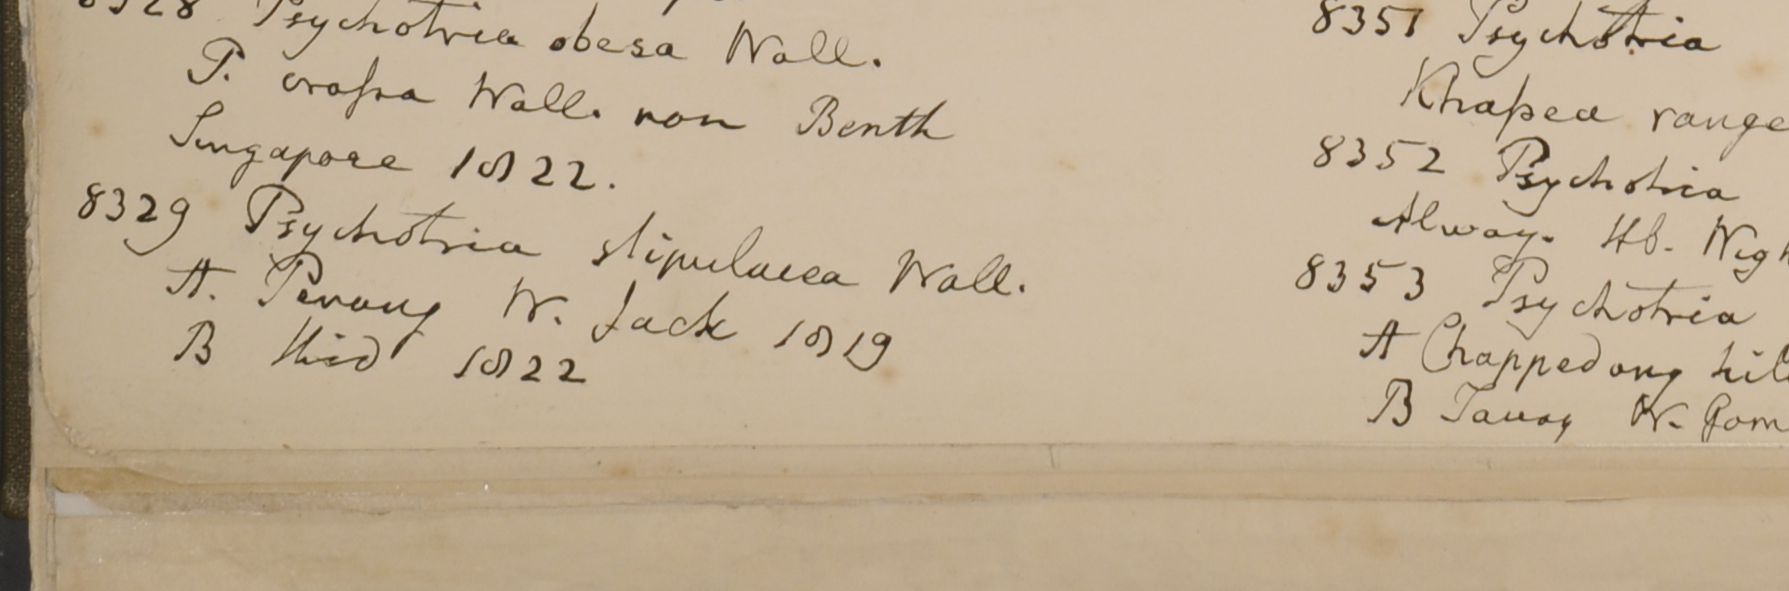 8328 Psychotria obesa Wall.
P. crassa Wall. non Benth
Singapore 1822.
8329 Psychotria stipulacea Wall.
A. Penang W. Jack 1819
B Ibid 1822
8351 Psychotria
Khasea range
8352 Psychotria
Alway. Hb. Wigh
8353 Psychotria
A Chappedong hill
B Tavoy W. Gom